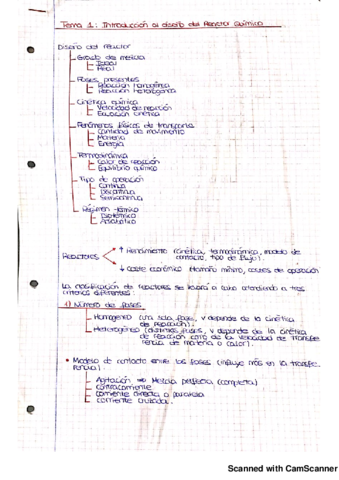 Tema 1: Introducción al diseño del Reactor Químico
Diseño del reactor
Grado de mezcla
Ideal
Real
Fases presentes
Reacción homogénea
Reacción heterogénea
Cinética química
Velocidad de reacción
Ecuación cinética
Fenómenos físicos de transporte
Cantidad de movimiento
Materia
Energía
Termodinámica
Calor de reacción
Equilibrio químico
Tipo de operación
Continua
Discontinua
Semicontinua
Régimen térmico
Isotérmico
Adiabático
REACTORES
↑ Rendimiento (cinética, termodinámica, modelo de
contacto, tipo de flujo).
↓ coste económico (tamaño mínimo, costes de operación
La clasificación de reactores se llevará a cabo atendiendo a tres
criterios diferentes:
1) Número de fases
Homogéneo (una sola fase, v depende de la cinética
de reacción).
Heterogéneo (distintas fases, v depende de la cinética
de reacción como de la velocidad de transfe
rencia de materia o calor).
• Modelo de contacto entre las fases (influye más en la transfe
rencia).
Agitación ⇒ Mezcla perfecta (completa)
Contracorriente
Corriente directa o paralela
Corriente cruzada.
Scanned with CamScanner